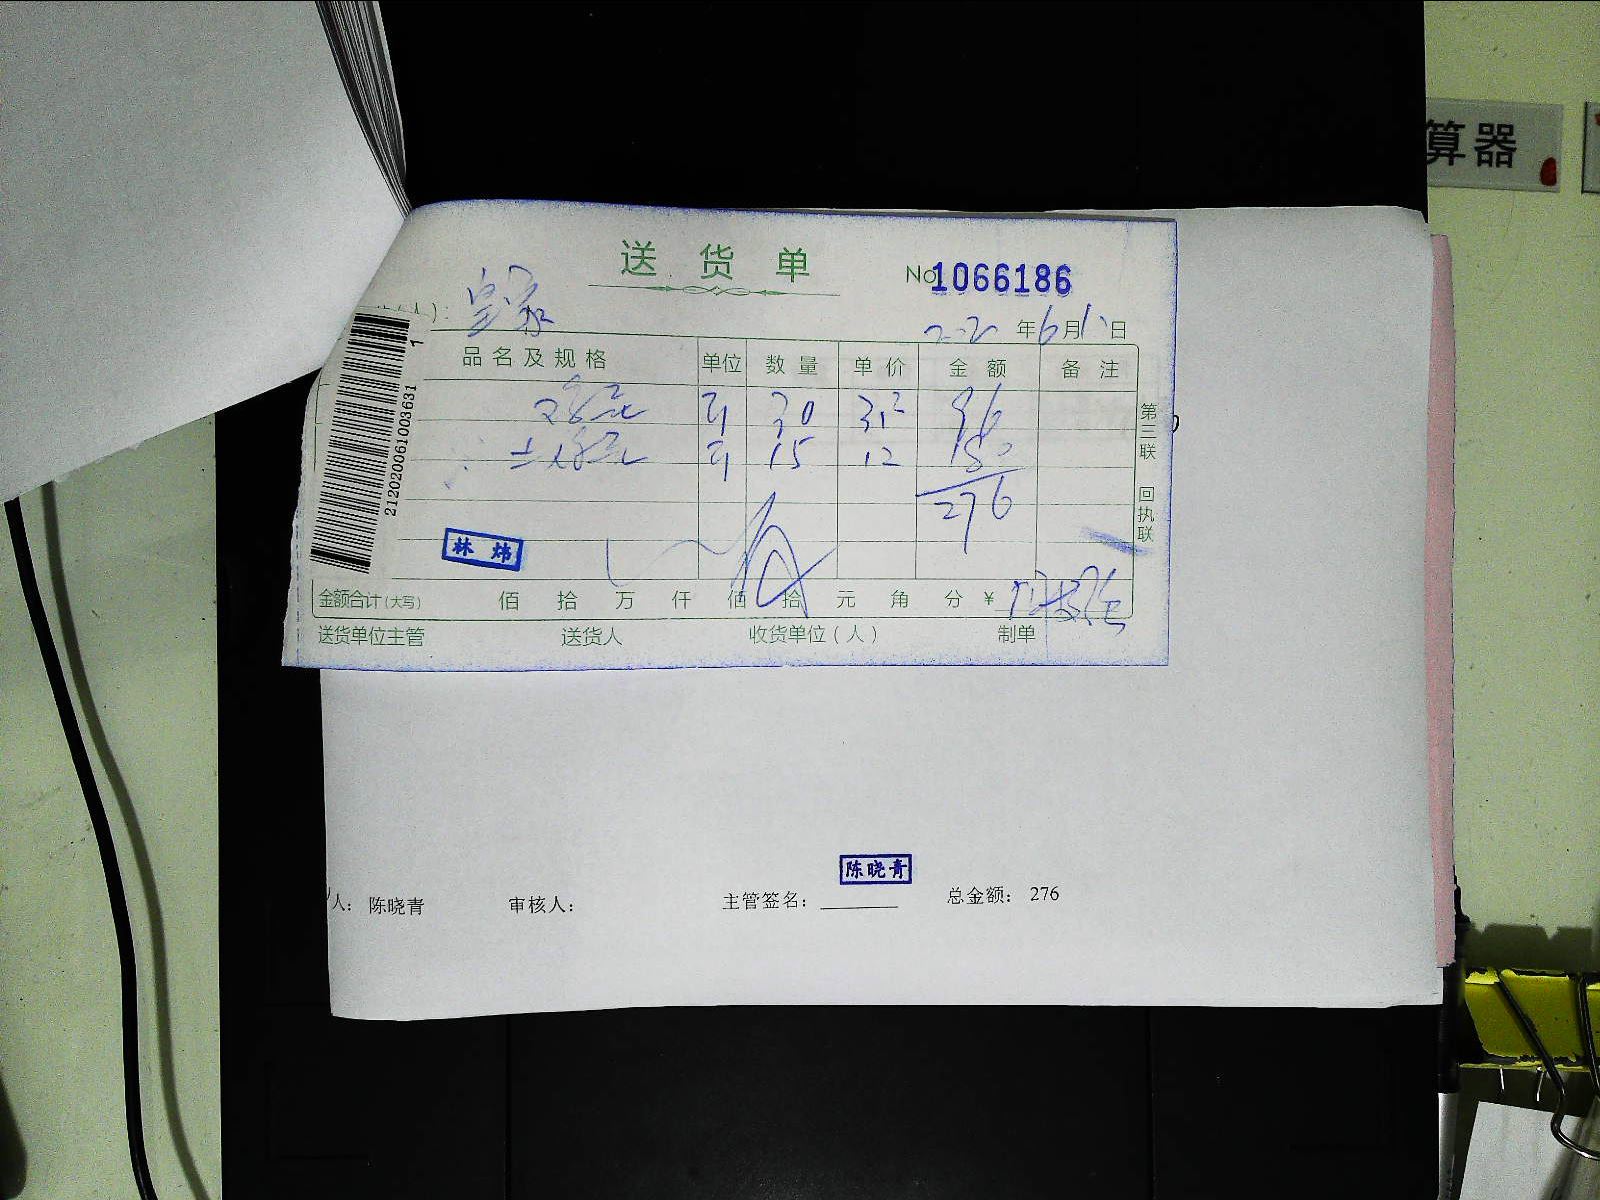 算器
送货单
No1066186
皇家
年6月1日
品名及规格 单位 数量 单价 金额 备注
30 3.2 96
15 12 180
276
第三联 回执联
2120200610036311
林炜
金额合计(大写) 佰 拾 万 仟 佰 拾 元 角 分 ¥
送货单位主管 送货人 收货单位(人) 制单
陈晓青
人: 陈晓青 审核人: 主管签名: 总金额: 276